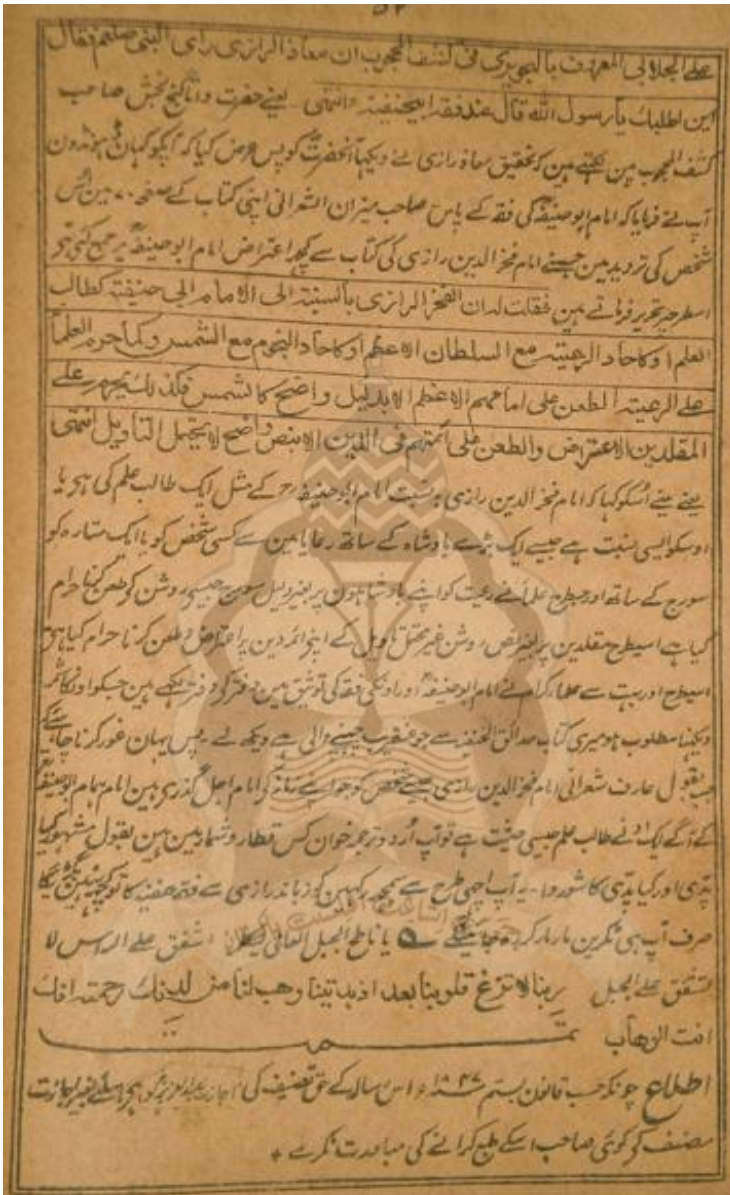 ۵۲
علے الجلابی المعروف بالہجویری فی کشف المحجوب ان معاذ الرازی رای النبی صلعم فقال
این اطلبک یا رسول اللہ قال عند فقہ ابیحنیفۃ انتہی یعنے حضرت داتا گنج بخش صاحب
کشف المحجوب مین لکھتے ہین کہ تحقیق معاذ رازی نے دیکھا آنحضرت کو پس عرض کیا کہ آپکو کہان ڈہونڈون
آپ نے فرمایا کہ امام ابو حنیفہ کی فقہ کے پاس صاحب میزان الشعرانی اپنی کتاب کے صفحہ ۷۰ مین اُس
شخص کی تردید مین جسنے امام فخر الدین رازی کی کتاب سے کچھ اعتراض امام ابو حنیفہ پر جمع کئی تہے
اسطرحپر تحریر فرماتے ہین فقلت لہ ان الفخر الرازی بالنسبۃ الی الامام ابی حنیفۃ کطالب
العلم او کاحاد الرعیۃ مع السلطان الاعظم او کاحاد النجوم مع الشمس وکما حرم العلماً
علے الرعیتہ الطعن علی امامہم الاعظم الا بدلیل واضح کالشمس فکذلک یحرم علے
المقلدین الاعتراض والطعن علی ائمتہم فی الدین الا بنص واضح لا یحتمل التاویل انتہی
یعنے مینے اُسکو کہا کہ امام فخر الدین رازی بہ نسبت امام ابو حنیفہ رح کے مثل ایک طالب علم کی ہی یا
اوسکو ایسی نسبت ہے جیسے ایک بڑے بادشاہ کے ساتھ رعایا مین سے کسی شخص کو یا ایک ستارہ کو
سورج کے ساتھ اور جسطرح علمأ نے رعیت کو اپنے بادشاہون پر بغیر دلیل سورج جیسی روشن کو طعن کرنا حرام
کیا ہے اسیطرح مقلدین پر بغیر نص روشن غیر محتمل تاویل کے اپنے ائمہ دین پر اعتراض و طعن کرنا حرام کیا ہی
اسیطرح اور بہت سے علمار کرام نے امام ابو حنیفہ اور اونکی فقہ کی توثیق مین دفتر کے دفتر لکہے ہین جسکو اونکا
دیکہنا مطلوب ہو میری کتاب حدائق الحنفیہ سے جو عنقریب چہپنے والی ہے دیکھ لے پس یہان غور کرنا چاہئے کہ
جب بقول عارف شعرانی امام فخر الدین رازی جیسے شخص کو جو اپنے زمانہ کے امام اجل گذرے ہین امام ہمام ابو حنیفہ
کے آگے ایک ادنے طالب علم جیسی حیثیت ہے تو آپ اُردو ترجمہ خوان کس قطار و شمار مین ہین بقول مشہور کیا
پدی اور کیا پدی کا شوروا۔ یہ آپ اچہی طرح سے سمجہہ رکہین کہ زباندرازی سے فقہ حنفیہ کا تو کچھ نہین بگڑیگا
صرف آپ ہی ٹکرین مار مار کر رہ جائینگے یا ناطح الجبل العالی اشفق علے الراس لا
تشفق علے الجبل ربنا لا تزغ قلوبنا بعد اذ ہدیتنا وھب لنا من لدنک رحمۃ انک
انت الوھاب
اطلاع چونکہ حسب قانون بستم ۱۸۴۷ء اس رسالہ کے حق تصنیف کی بغیر اجازت
مصنف کے کوئی صاحب اسکے طبع کرانے کی مبادرت نکرے +